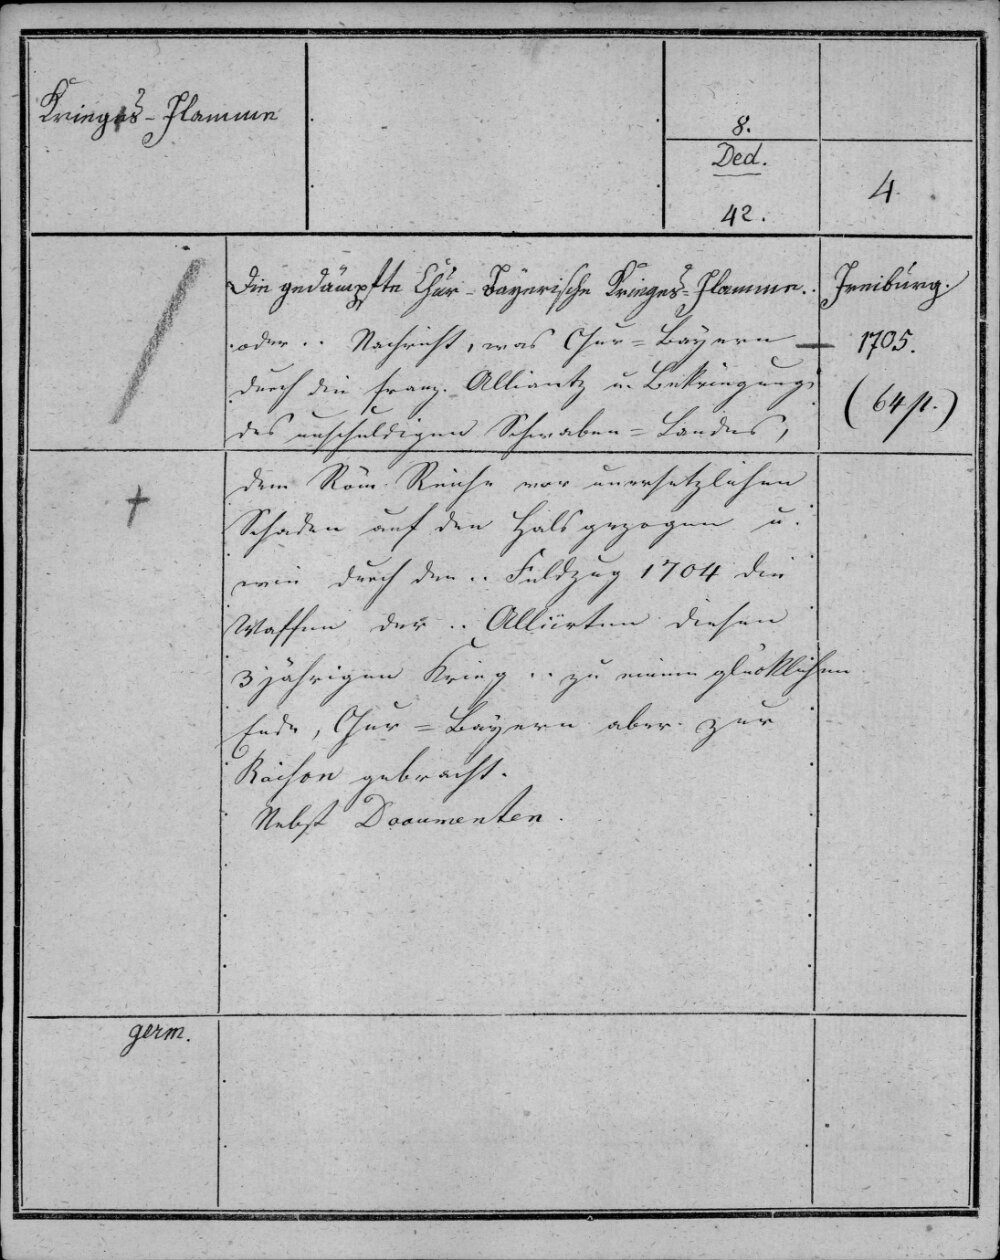 Krieges-Flamme
8.
Ded.
42.
4
Die gedämpfte Chur-Bayerische Krieges-Flamme..
oder .. Nachricht, was Chur=Bayern
durch die franz. Alliantz u. Bekriegung
des unschuldigen Schwaben=Landes,
dem Röm. Reiche vor unersetzlichen
Schaden auf den Hals gezogen u.
wie durch den .. Feldzug 1704 die
Waffen der .. Alliirten diesen
3jährigen Krieg .. zu einem glücklichen
Ende, Chur=Bayern aber zur
Raison gebracht.
Nebst Documenten.
Freiburg.
1705.
(64 p.)
germ.